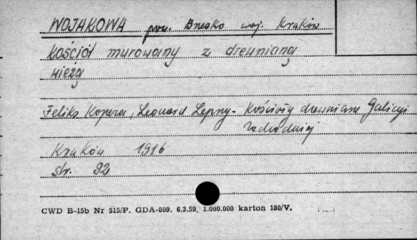 WOJAKOWA pow. Brzesko woj. Kraków
Kościół murowany z drewnianą
wieżą
Feliks Kopera, Leonard Lepszy - Kościoły drewniane Galicyi
Zachodniej
Kraków 1916
str. 92
CWD B-15b Nr 515/P. GDA-809. 6.3.59, 1.000.000 karton 180/V.